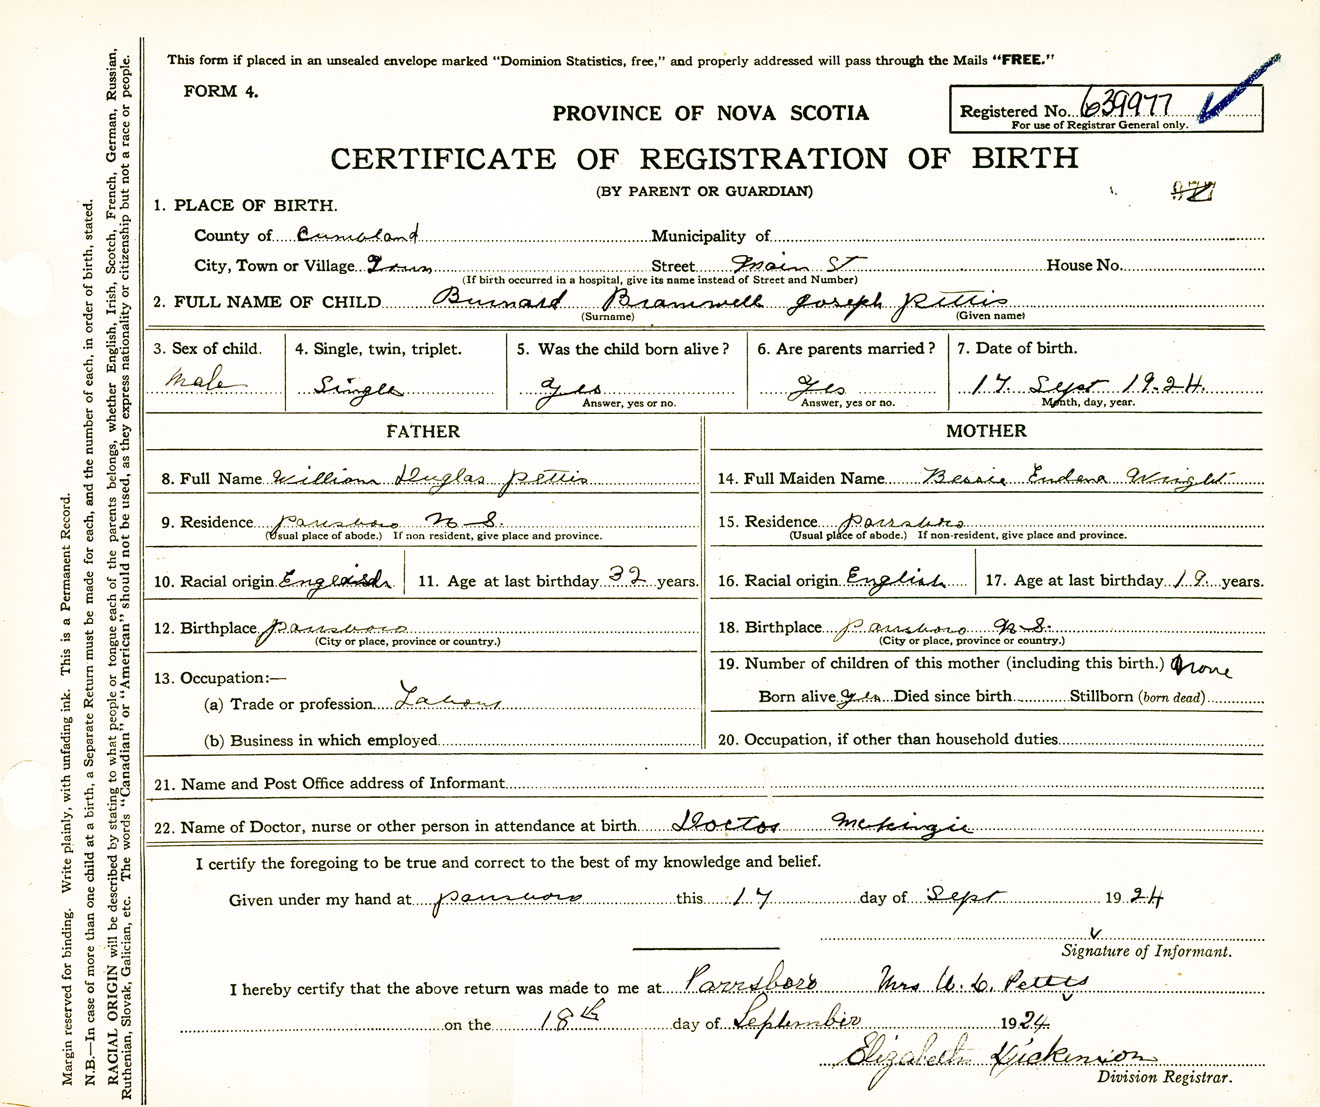 This form if placed in an unsealed envelope marked “Dominion Statistics, free,” and properly addressed will pass through the Mails “FREE.”
FORM 4.
PROVINCE OF NOVA SCOTIA
Registered No. 639977
For use of Registrar General only.
CERTIFICATE OF REGISTRATION OF BIRTH
(BY PARENT OR GUARDIAN)
1. PLACE OF BIRTH.
County of Cumbland Municipality of
City, Town or Village Town Street Main St House No.
(If birth occurred in a hospital, give its name instead of Street and Number)
2. FULL NAME OF CHILD Burnard Bramwell Joseph Pettis
(Surname) (Given name)
3. Sex of child. 4. Single, twin, triplet. 5. Was the child born alive? 6. Are parents married? 7. Date of birth.
Male Single Yes Yes 17 Sept 1924.
Answer, yes or no. Answer, yes or no. Month, day, year.
FATHER MOTHER
8. Full Name William Duglas Pettis 14. Full Maiden Name Bessie Endena Wright
9. Residence Parrsboro N S. 15. Residence Parrsboro
(Usual place of abode.) If non resident, give place and province. (Usual place of abode.) If non-resident, give place and province.
10. Racial origin English 11. Age at last birthday 32 years. 16. Racial origin English 17. Age at last birthday 19 years.
12. Birthplace Parrsboro 18. Birthplace Parrsboro N.S.
(City or place, province or country.) (City or place, province or country.)
19. Number of children of this mother (including this birth.) none
13. Occupation:—
(a) Trade or profession Labour Born alive yes Died since birth Stillborn (born dead)
(b) Business in which employed 20. Occupation, if other than household duties
21. Name and Post Office address of Informant
22. Name of Doctor, nurse or other person in attendance at birth Doctor McKingie
I certify the foregoing to be true and correct to the best of my knowledge and belief.
Given under my hand at Parrsboro this 17 day of Sept 1924
Signature of Informant.
I hereby certify that the above return was made to me at Parrsboro Mrs W. D. Pettis
on the 18th day of September 1924
Elizabeth Dickenson
Division Registrar.
Margin reserved for binding. Write plainly, with unfading ink. This is a Permanent Record.
N.B.—In case of more than one child at a birth, a Separate Return must be made for each, and the number of each, in order of birth, stated.
RACIAL ORIGIN will be described by stating to what people or tongue each of the parents belongs, whether English, Irish, Scotch, French, German, Russian,
Ruthenian, Slovak, Galician, etc. The words “Canadian” or “American” should not be used, as they express nationality or citizenship but not a race or people.